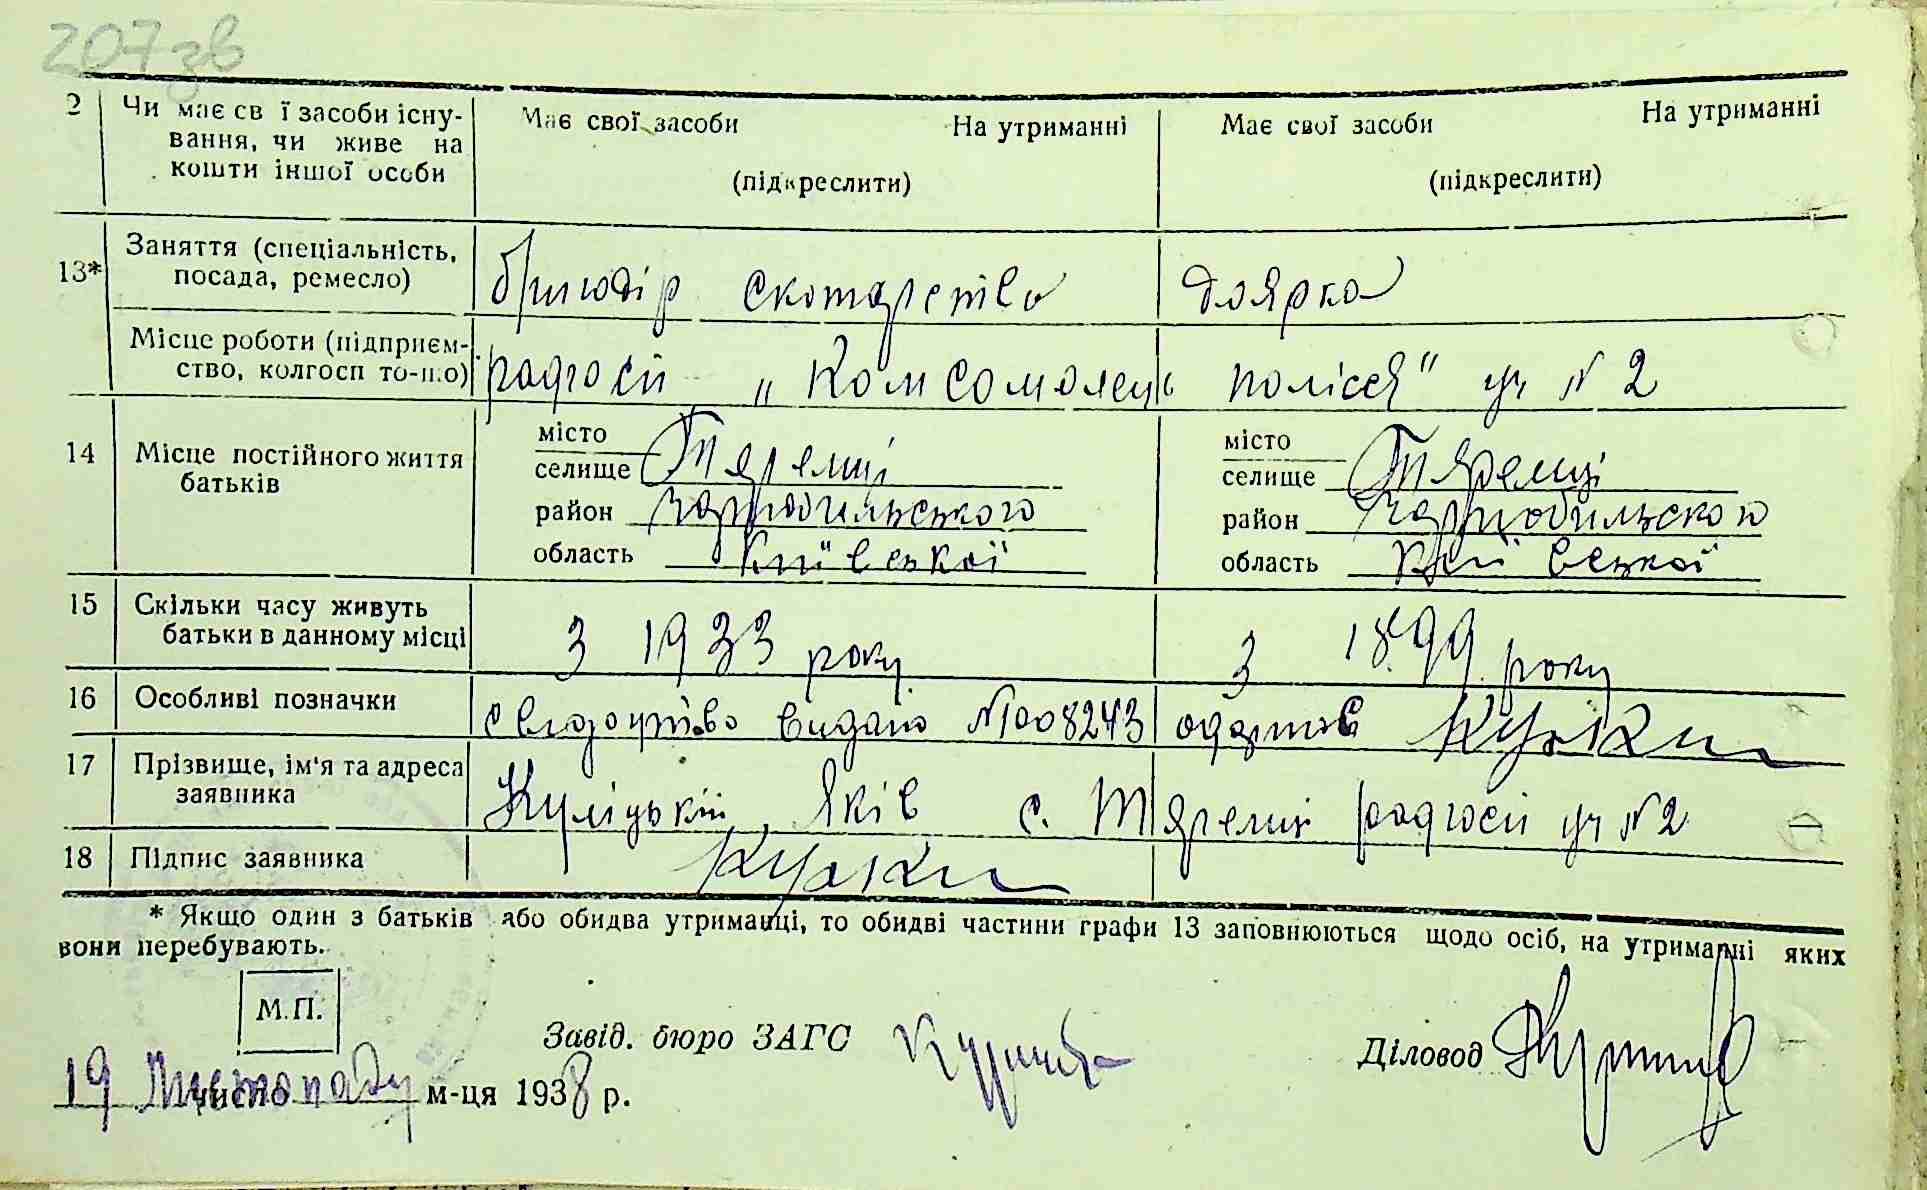 207 зв
2 Чи має св ї засоби існу- Має свої засоби На утриманні Має свої засоби На утриманні
вання, чи живе на
кошти іншої особи (підкреслити) (підкреслити)
13* Заняття (спеціальність, посада, ремесло) бригадір скотарства доярка
Місце роботи (підприєм-
ство, колгосп то-що) радгосп „Комсомолець полісся" уч № 2
14 Місце постійного життя батьків
місто місто
селище Теремці селище Теремці
район Чорнобильського район Чорнобильского
область Київської область Київської
15 Скільки часу живуть
батьки в данному місці з 1933 року з 1899 року
16 Особливі позначки свідоцтво видано №008243 одержав
17 Прізвище, ім'я та адреса
заявника Куліцькій Яків с. Теремці радгосп уч №2
18 Підпис заявника
* Якщо один з батьків або обидва утриманці, то обидві частини графи 13 заповнюються щодо осіб, на утриманні яких
вони перебувають.
М.П.
Завід. бюро ЗАГС Діловод
19 числа Листопаду м-ця 1938 р.